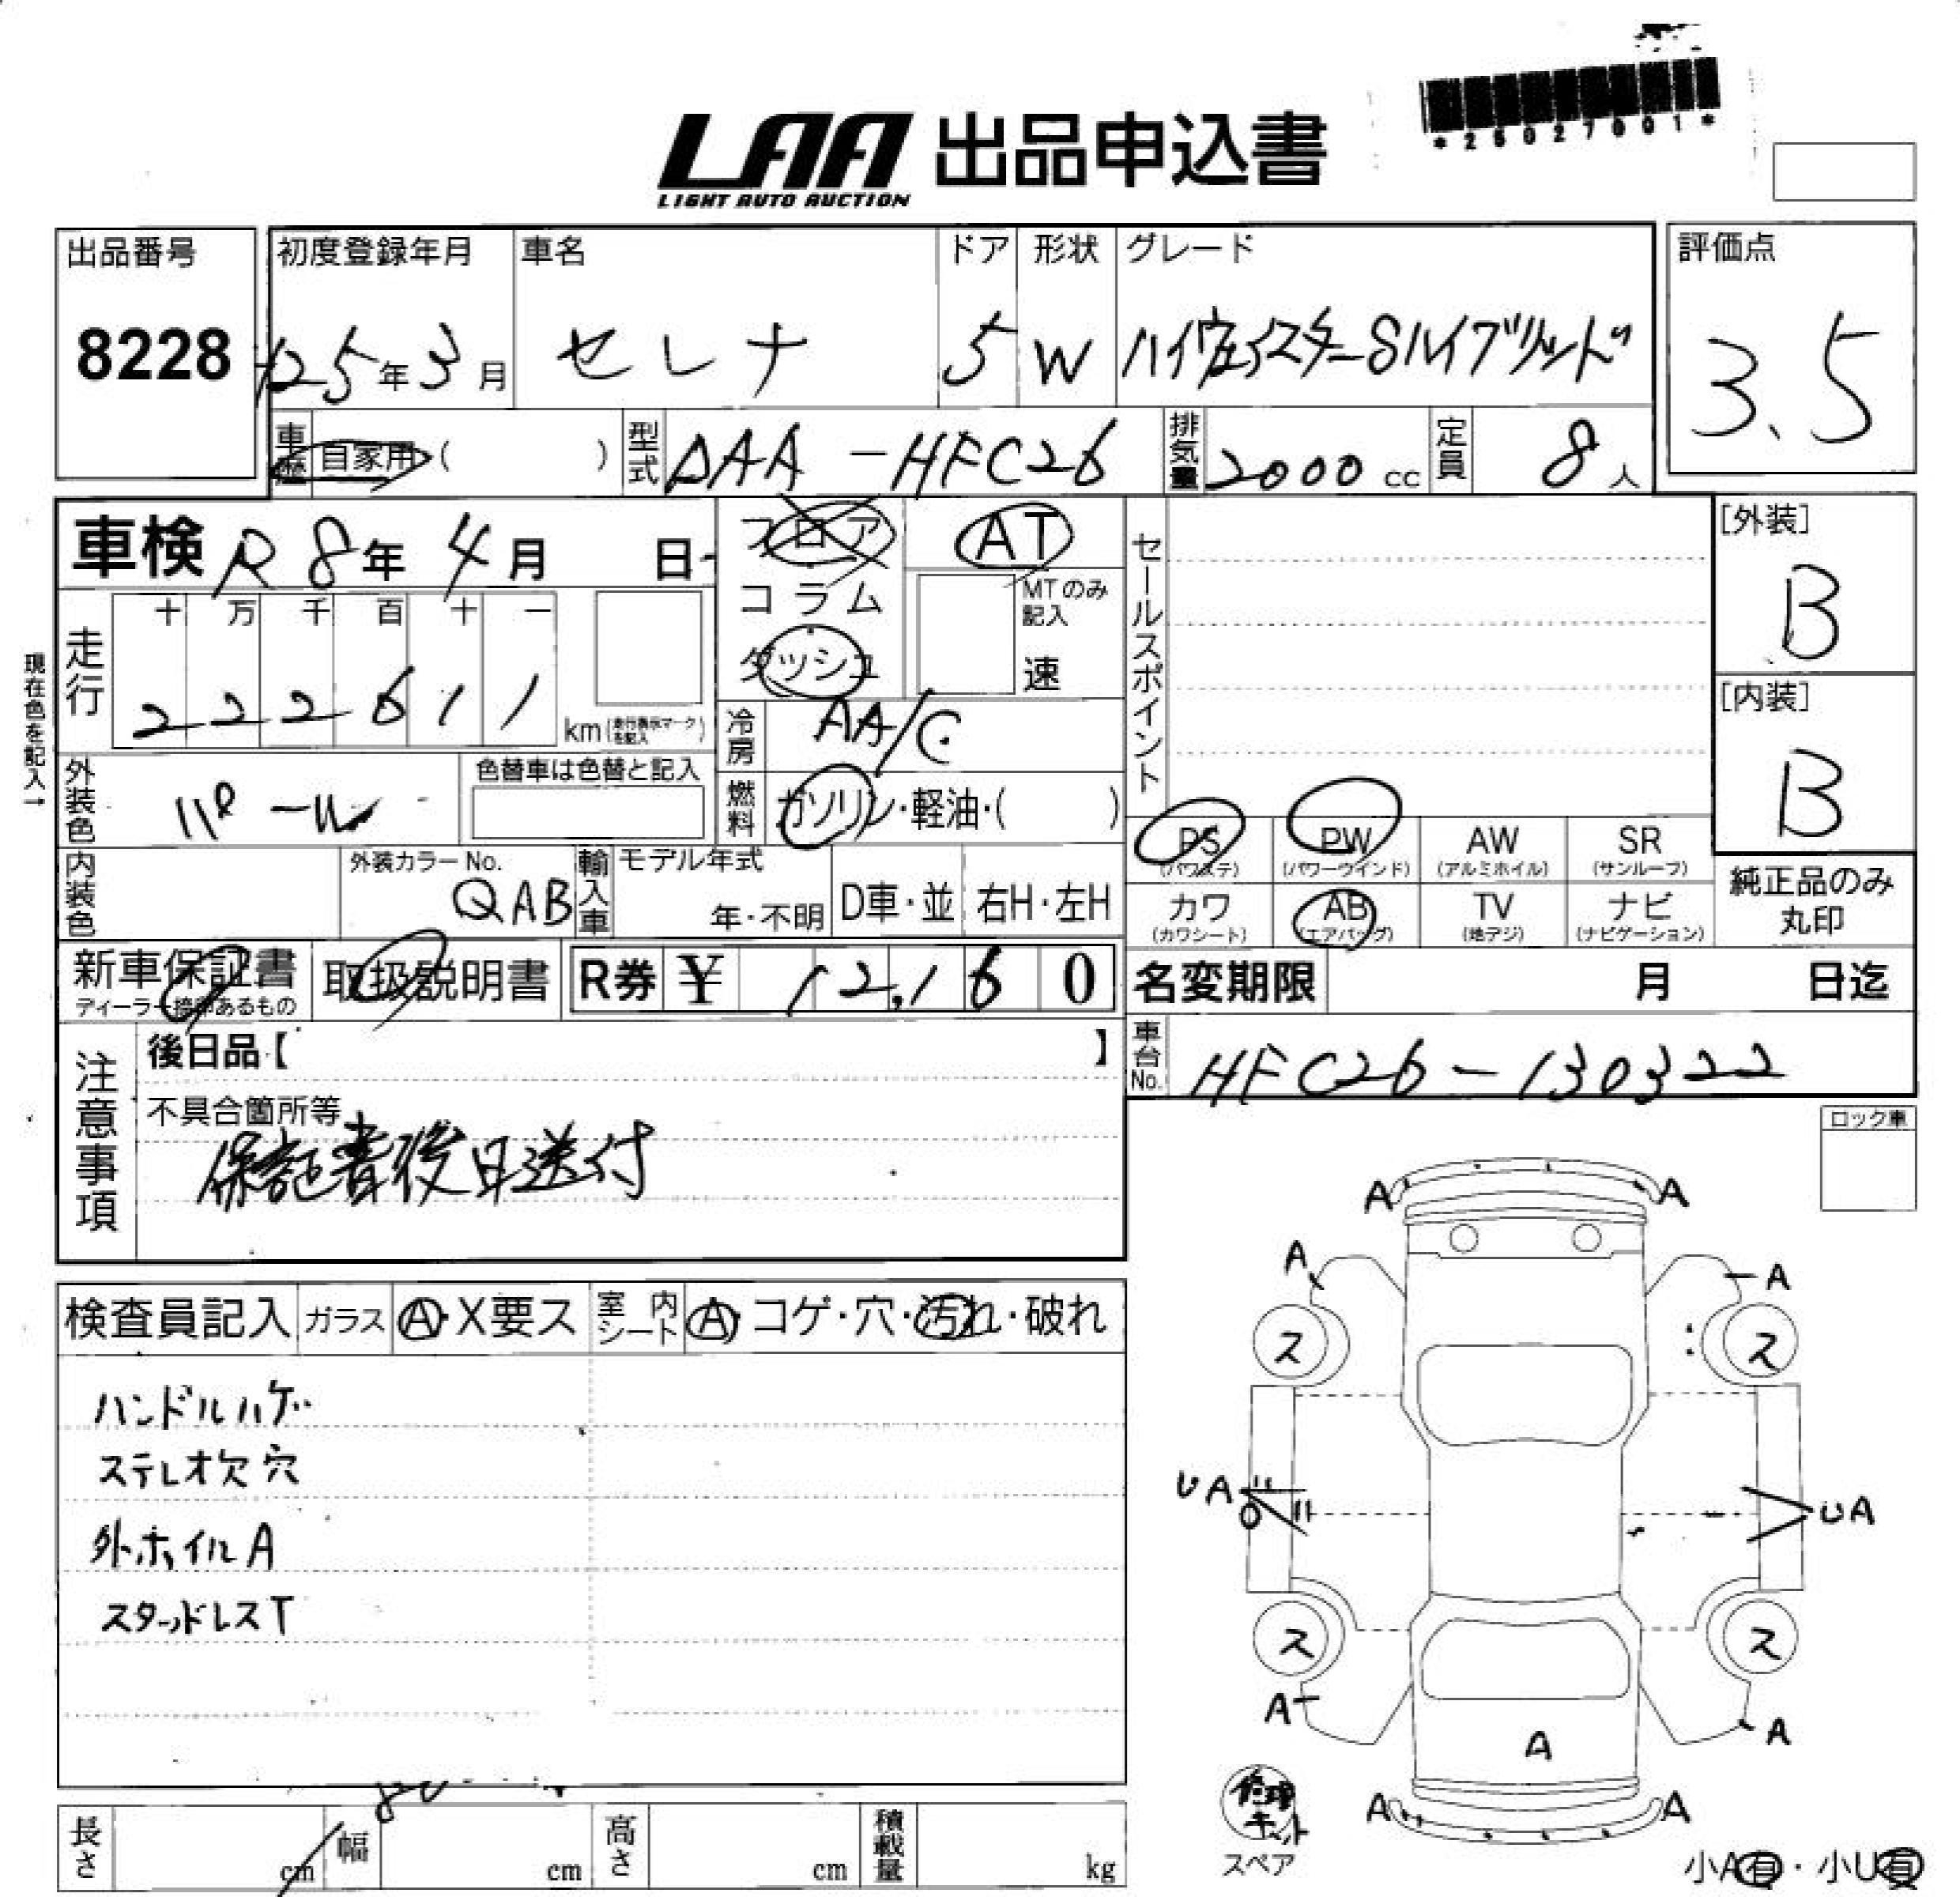 *25027001*
LAA 出品申込書
LIGHT AUTO AUCTION
出品番号 初度登録年月 車名 ドア 形状 グレード 評価点
8228 H25年3月 セレナ 5 W ハイウェイスターSハイブリッド 3.5
車歴 自家用・( ) 型式 DAA-HFC26 排気量 2000cc 定員 8人
車検 R8年4月 日 フロア AT セールスポイント [外装]
コラム MTのみ記入 B
ダッシュ 速
現在色を記入→
走行 十 万 千 百 十 一
2 2 2 6 1 1 km(走行表示マークを記入) [内装]
冷房 AA/C B
外装色 パール 色替車は色替と記入 燃料 ガソリン・軽油・( )
PS PW AW SR
(パワステ) (パワーウインド) (アルミホイル) (サンルーフ) 純正品のみ
内装色 外装カラーNo. QAB 輸入車 モデル年式 年・不明 D車・並 右H・左H カワ AB TV ナビ 丸印
(カワシート) (エアバッグ) (地デジ) (ナビゲーション)
新車保証書 取扱説明書 R券 ¥ 12,160 名変期限 月 日迄
ディーラー捺印あるもの
注意事項 後日品【 】 車台No. HFC26-130322
不具合箇所等 ロック車
保証書後日送付
A A
A A
検査員記入 ガラス A・X要ス 室内シート A・コゲ・穴・汚れ・破れ
ス ス
ハンドルハゲ
ステレオ欠 穴
UA UA
外ホイルA
スタッドレスT
ス ス
A A
A
修理キット
A A
スペア
長さ cm 幅 cm 高さ cm 積載量 kg 小A有・小U有